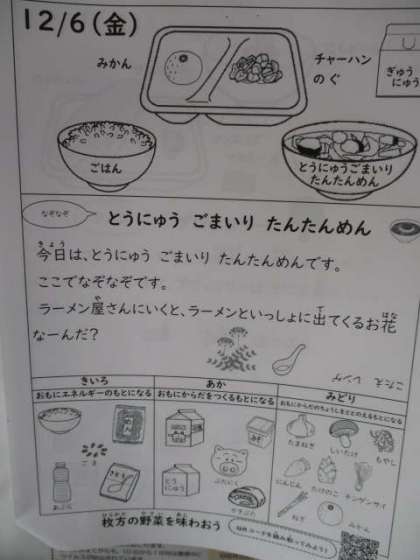 12/6(金)
みかん
チャーハン
のぐ
ぎゅう
にゅう
ごはん
とうにゅうごまいり
たんたんめん
なぞなぞ
とうにゅう ごまいり たんたんめん
きょう
今日は、とうにゅう ごまいり たんたんめんです。
ここでなぞなぞです。
や
で
はな
ラーメン屋さんにいくと、ラーメンといっしょに出てくるお花
なーんだ?
こたえ レンゲ
きいろ
おもにエネルギーのもとになる
あか
おもにからだをつくるもとになる
みどり
おもにからだのちょうしをととのえるもとになる
ごま
あぶら
とう
にゅう
ぶたにく
たまねぎ
しいたけ
もやし
にんじん
たけのこ
チンゲンサイ
ねぎ
みかん
ひらかた
やさい
あじ
枚方の野菜を味わおう